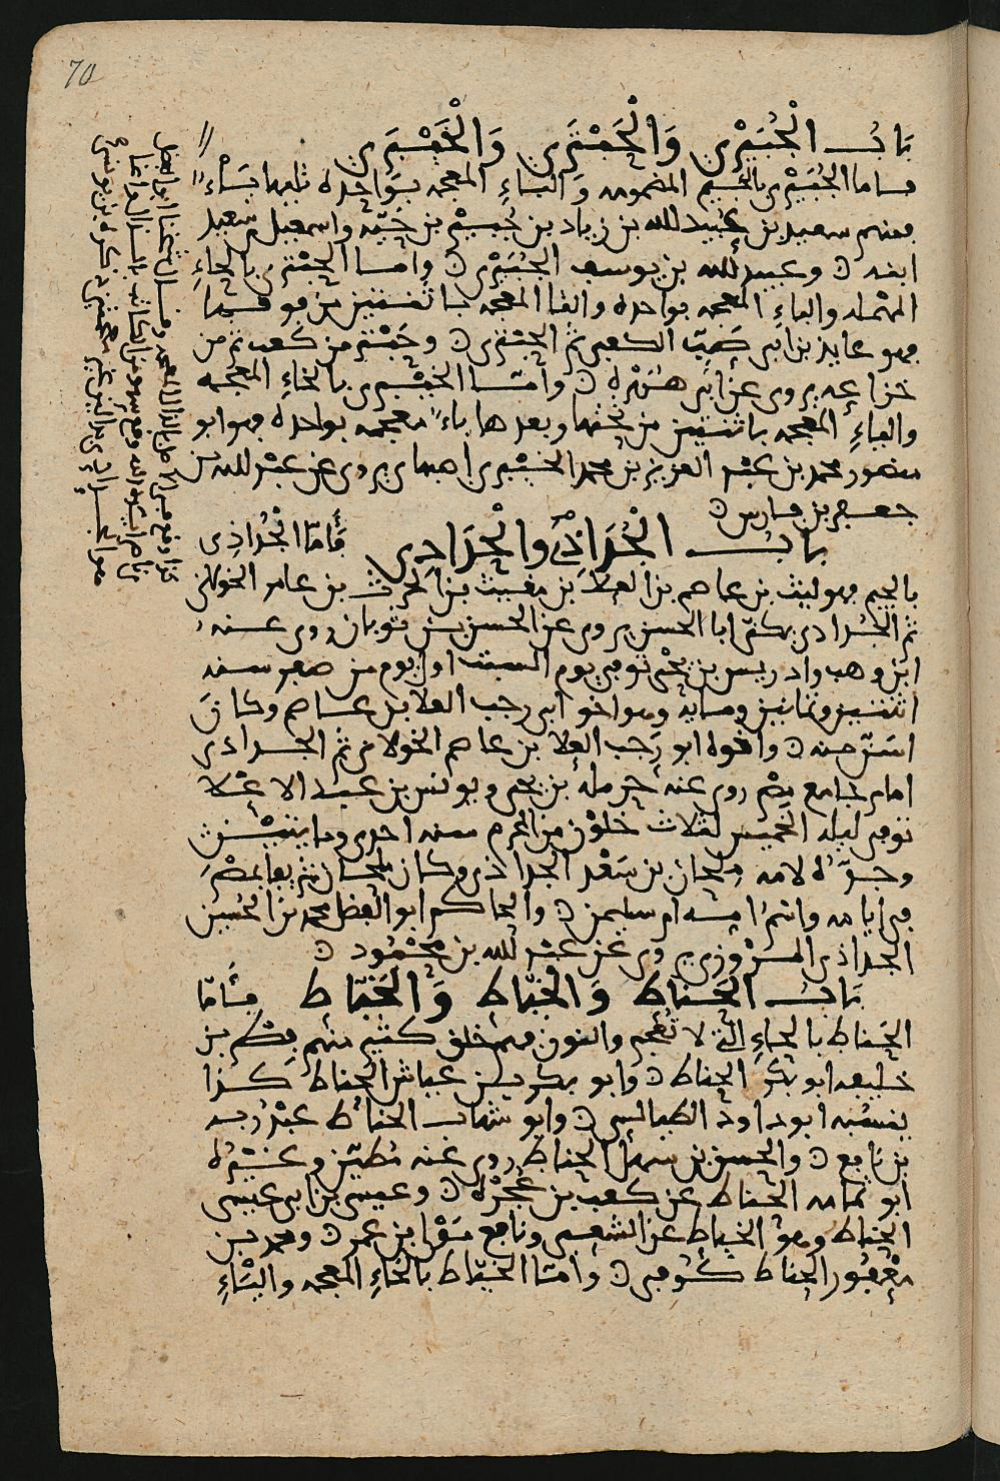 70
باب الجُبَيْري وَالْحَبْتَري وَالْخَيْبَري
فاما الجُبَيْري بالجيم المضمومه وَالباءِ المعجمه بوَاحده تليها يَاءٌ
فهم سعيد بن عُبيد الله بن زياد بن جُبير بن حَيّه واسمعيل بن سعيد
ابنه وعبيد الله بن يوسف الجُبَيْري وامـا الحَبْتَري بالحاءِ
المهمله والباءِ المعجمه بواحده والتا المعجمه باثنتين من فوقها
فهو عايذ بن ابي ضبّ الكعبي ثم الحبْتري وحَبْتر من كعب ثم من
خزاعه يروى عن ابي هُرَيْره وأمّـا الخَيْبَري بالخاءِ المعجمه
والياءِ المعجمه باثنتين من تحتها وبعدها باءٌ معجمه بواحده فهو ابو
منصور محمد بن عبْد العزيز بن محمد الخَيْبَري اصبهاني يروى عن عبْد الله بن
جعفر بن فارس
باب الْجُدَاذي والْحِدَادي فَأمّا الجُدَادِي
بالجيم فهو ليث بن عاصم بن العلا بن مغيث بن الحرث بن عامر الخولاني
ثم الجُدادي يكنى ابا الحسن يروى عن الحسن بن ثوبان روى عنه
ابن وهب وادريس بن يحيى توفي يوم السبت اول يوم من صفر سنه
اثنتين وثمانين ومايه وهو اخو ابي رجب العلا بن عاصم وكان
اسَنّ منه واخوه ابو رَجب العلا بن عاصم الخولاني ثم الجدادي
امام جامع مصْر روى عنه حرمله بن يحيى ويونس بن عبد الاعْلا
توفي ليله الخميس لثلاث خلوْن من المحرم سنه احدى ومايتيْن
وجدّه لامه ملحان بن سَعْد الجدادي وكان ملحان شريفا بمصْر
في ايامه وابنتُه ام سليمن والحاكم ابو الفضل محمد بن الحُسين
الحدادي المـرْوَزي يروى عن عبْد الله بن محْمُود
بَاب الحَنّاط وَالخَيّاط وَالخَبّاط فـأمّا
الحَناط بالحاءِ التي لا تُعْجم والنون فهم خلق كثير منهم فِطْر بن
خليفه ابو بكر الحناط وَابو بكر بـن عياش الحناط كـذا
ينسُبه ابو داود الطيالسي وابو شهاب الحنّاط عبْد رَبـه
بن نافع والحسن بن سهل الحناط روى عنه مُطيّن وغـيْرُه
ابو ثمامه الحناط عن كعب بن عُجْرَة وعيسى بن ابي عيسى
الحناط وهو الخياط عن الشعبي ونافع مَوْلى ابن عمر ومحمد بـن
الحناط كُـوفي وامّـا الخيّاط بالخاءِ المعجمه واليـاءِ